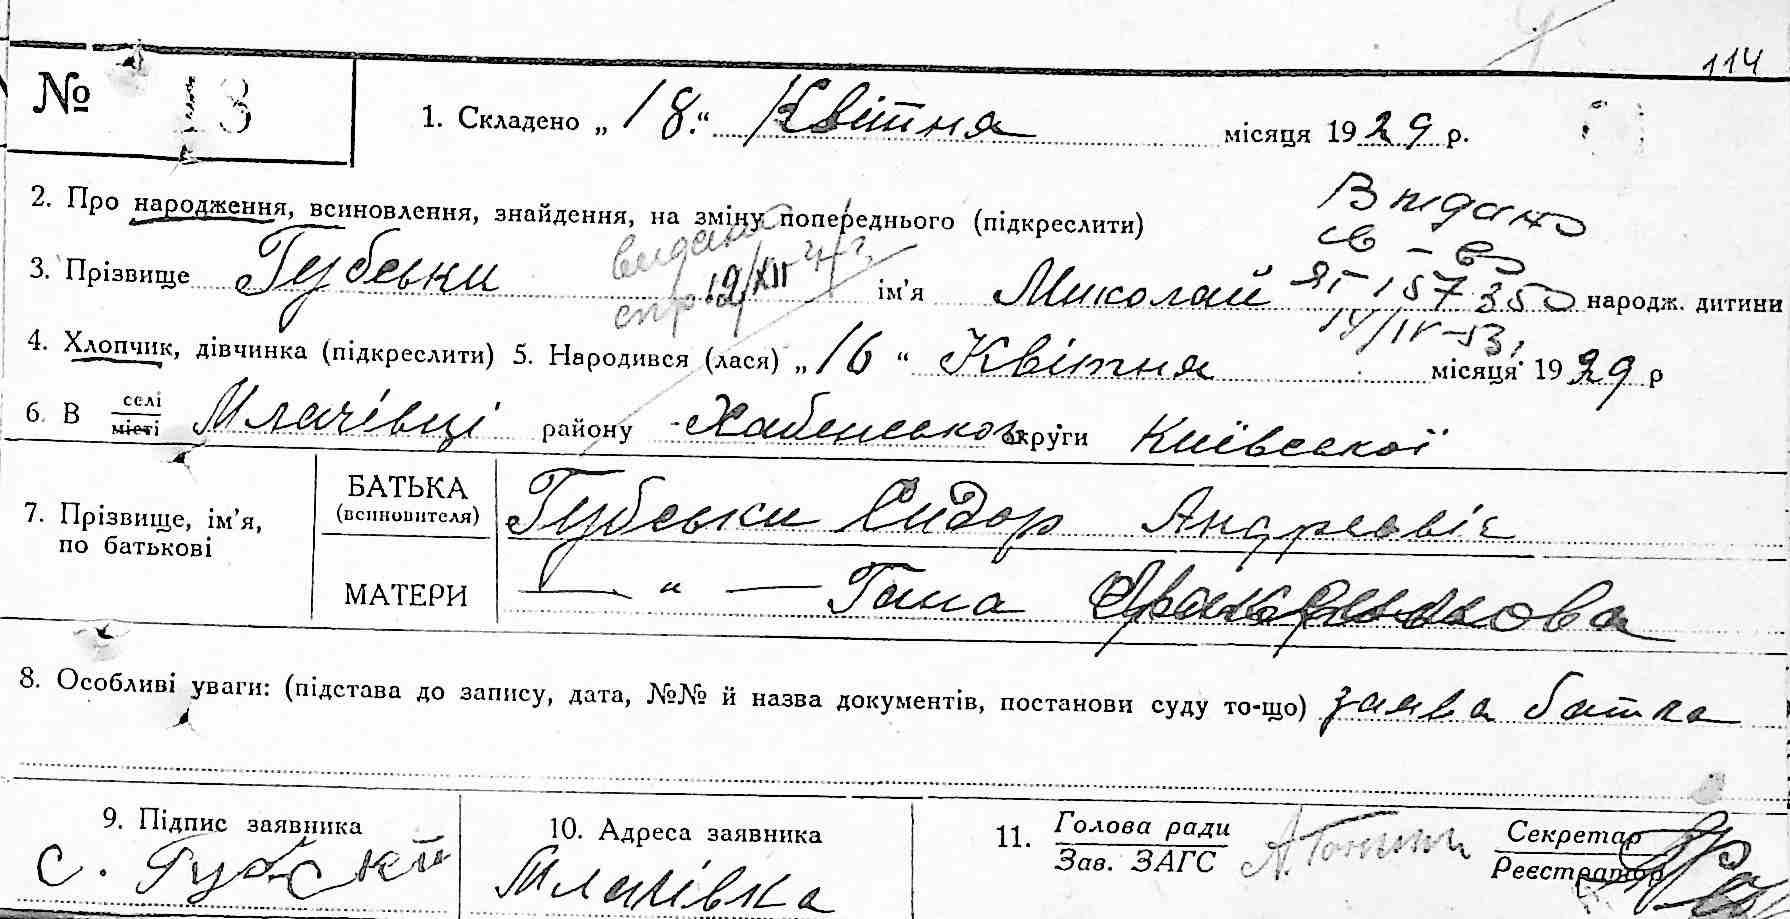 114
№ 13
1. Складено „18.“ Квітня місяця 1929 р.
2. Про народження, всиновлення, знайдення, на зміну попереднього (підкреслити)
Видано
св-во
ЯГ 157350
14/IV-53.
видана
спр 19/XII
3. Прізвище Губськи ім’я Миколай народж. дитини
4. Хлопчик, дівчинка (підкреслити) 5. Народився (лася) „16“ Квітня місяця 1929 р
6. В селі місті Млачівці району Хабенського округи Київської
7. Прізвище, ім’я, по батькові
БАТЬКА (всиновителя) Губськи Сидор Андреевіч
МАТЕРИ — “ — Гана
8. Особливі уваги: (підстава до запису, дата, №№ й назва документів, постанови суду то-що) заява батка
9. Підпис заявника
С. Губский
10. Адреса заявника
Млачівка
11. Голова ради
Зав. ЗАГС
Секретар
Реєстратор